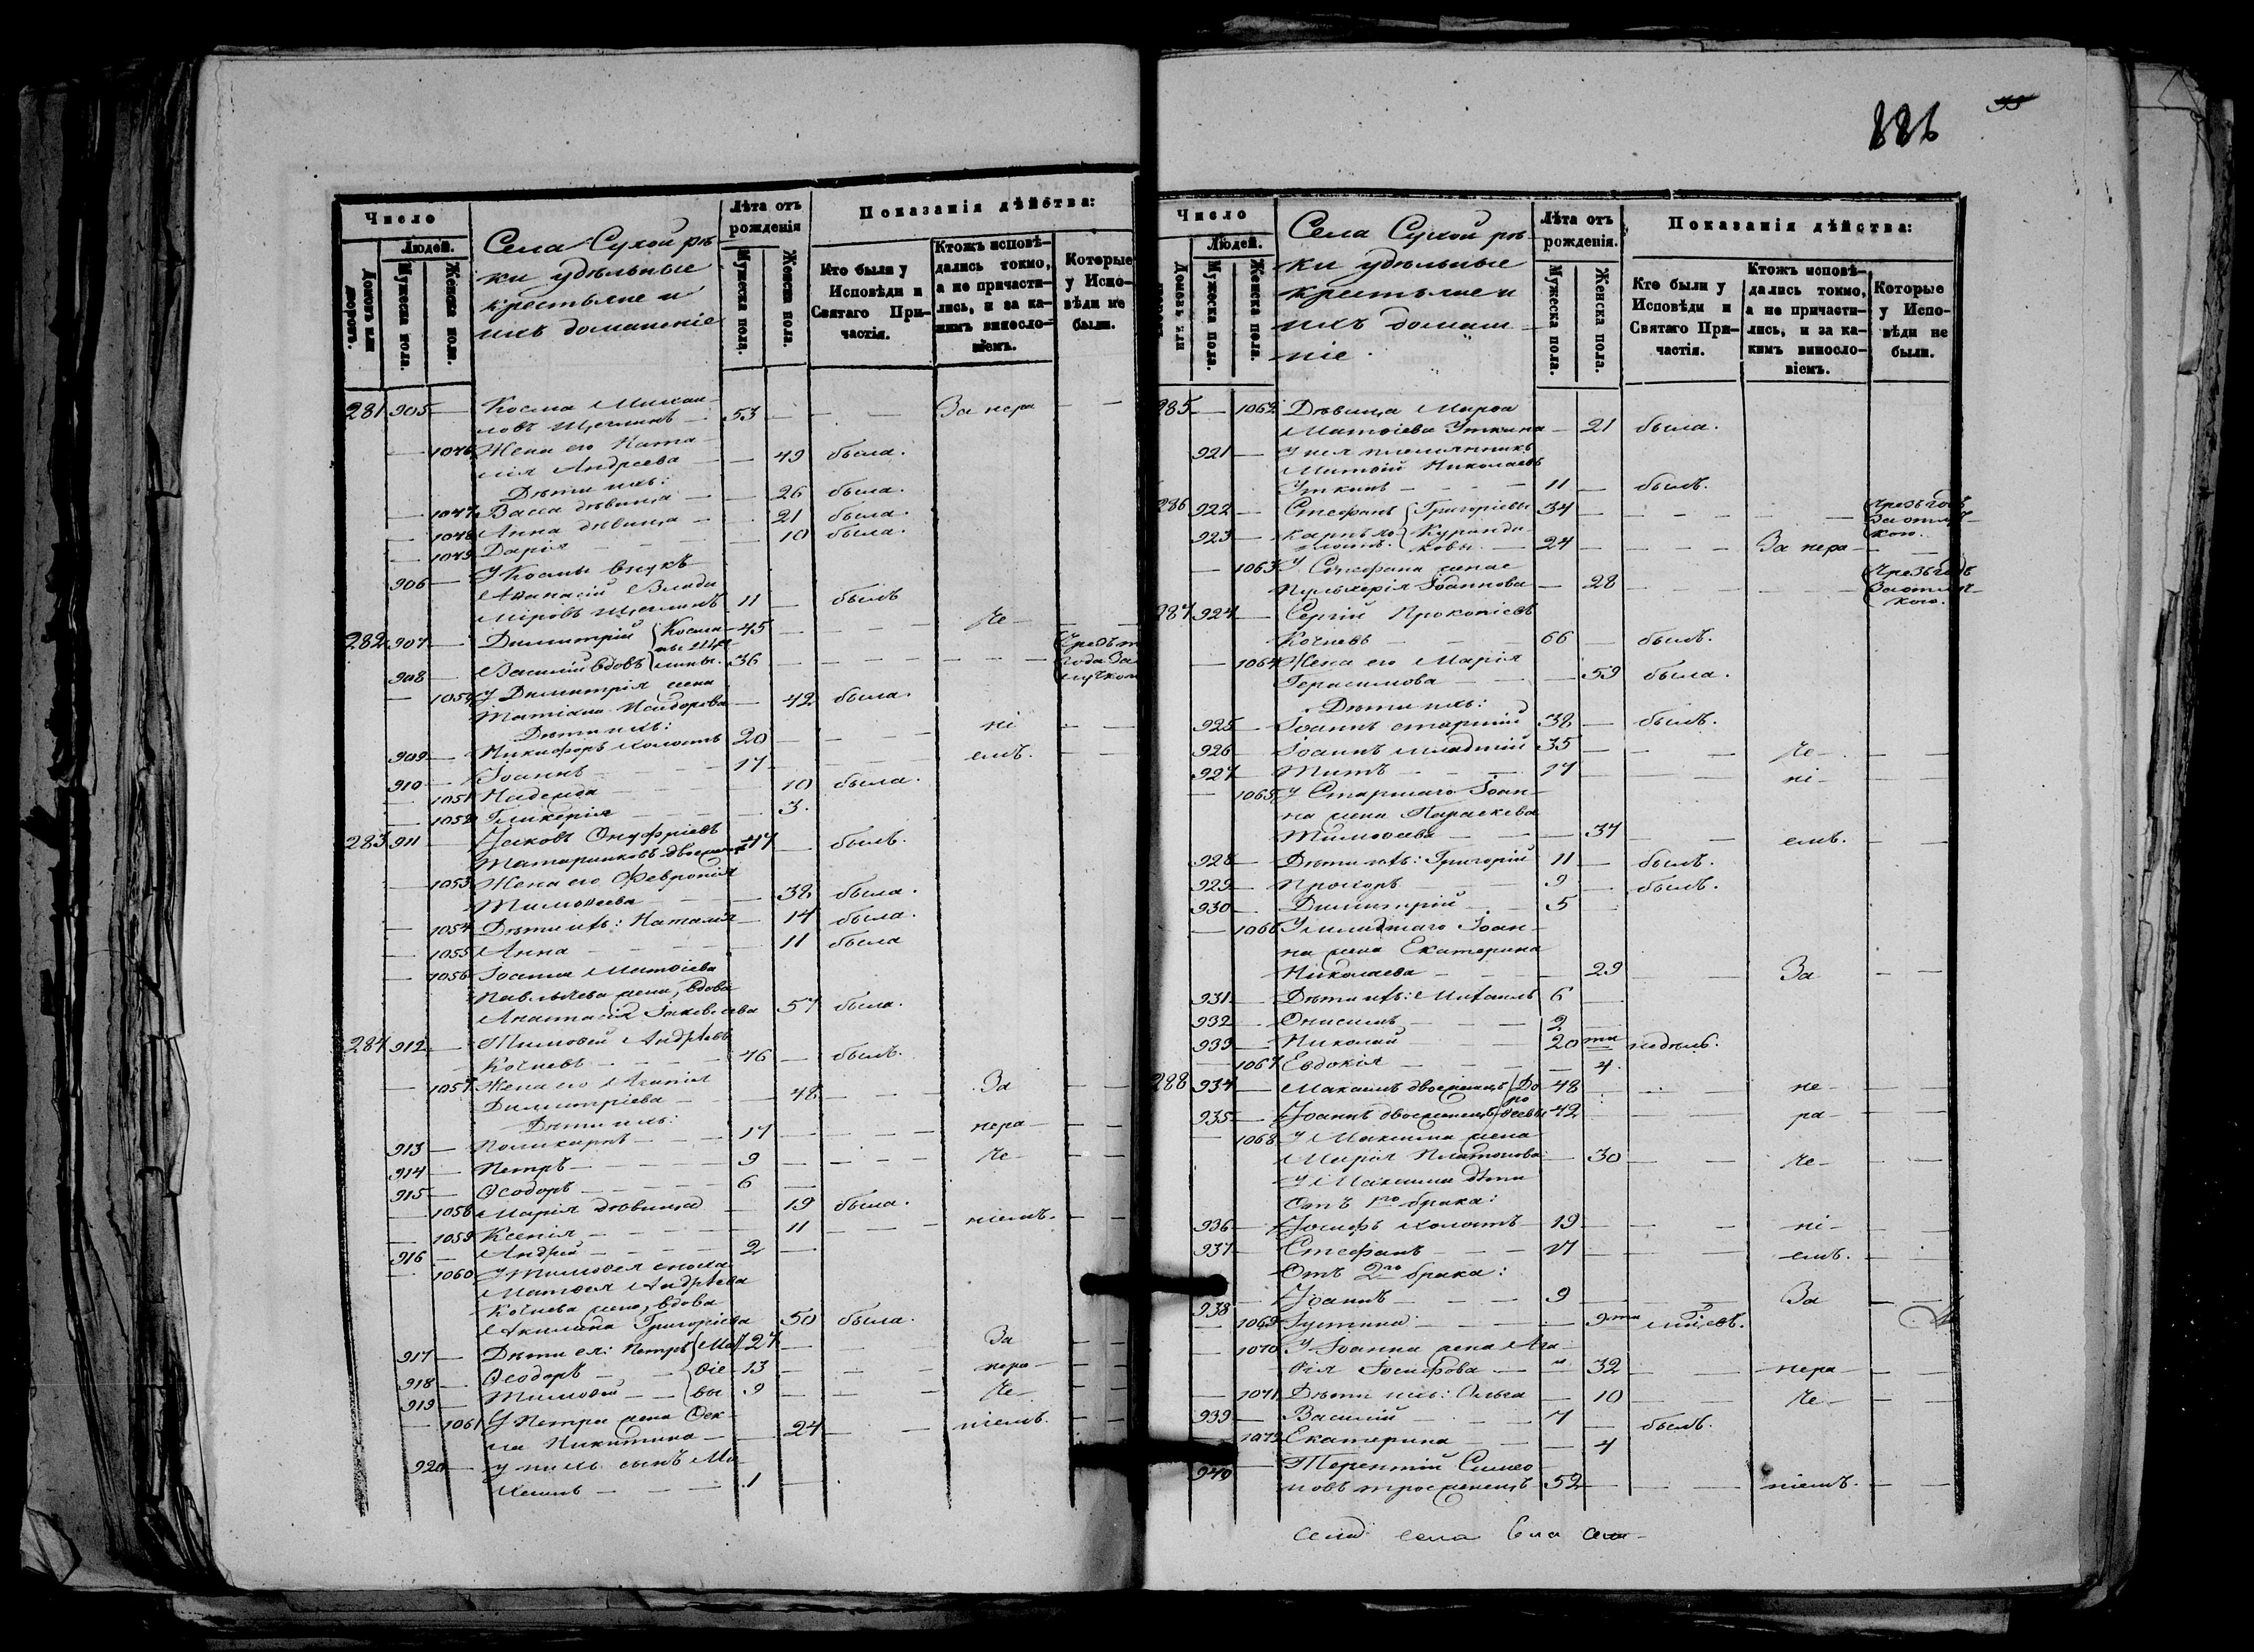 Число
Людей.
Домовъ или дворовъ.
Мужеска пола.
Женска пола.
Села Сухой рѣ-
ки удѣльные
крестьяне и
ихъ домашніе
Лѣта отъ рожденія
Мужеска пола.
Женска пола.
Показанія дѣйства:
Кто были у Исповѣди и Святаго Причастія.
Ктожъ исповѣ-
дались токмо,
а не причасти-
лись, и за ка-
кимъ винословіемъ.
Которые у Испо-
вѣди не были.
281 905 — Косма Михаи-
ловъ 53 — — — За нера — —
— 1046 Жена его Ната-
лія Андреева — — 49 была.
Дѣти ихъ:
— 1047 Васса дѣвица — — 26 была.
— 1048 Анна дѣвица — — 21 была.
— 1049 Дарія — — 10 была.
906 — У Космы внукъ
Аѳанасій Влади
міровъ 11 — былъ
282 907 — Димитрій Косми- 45 — — — Че — —
908 — Василій вдовъ 36 — — — — — —
— 1050 У Димитрія жена
Татіана Исидорова — 42 была.
Дѣти ихъ:
909 — Никифоръ холостъ 20 — — — ні — —
910 — Іоаннъ — — 17 — — емъ. — —
— 1051 Надежда — — 10 была.
— 1052 Гликерія — — 3.
283 911 — Іаковъ Онуфріевъ
Татаринковъ двоеженецъ 47 — былъ.
— 1053 Жена его Февронія
Тимоѳеева — — 38 была.
— 1054 Дѣти ихъ: Наталія — 14 была.
— 1055 Анна — — 11 была
— 1056 Іоанна Матѳіева
жена, вдова
Анастасія Іаковлева 57 была.
284 912 — Тимоѳей Андреевъ
Кочневъ — — 46 — былъ.
— 1057 Жена его Агапія
Димитріева — — 48 — — За — —
Дѣти ихъ:
913 — Поликарпъ — — 17 — — — нера — —
914 — Петръ — — 9 — — — Че — —
915 — Ѳеодоръ — — 6 —
— 1058 Марія дѣвица — 19 была.
— 1059 Ксенія — — 11 — — ніемъ. — —
916 — Андрей — — 2 —
— 1060 У Тимоѳея сноха
Матѳея Андреева
Кочнева жена, вдова
Акилина Григоріева 50 была.
917 — Дѣти ея: Петръ Мат 27 — — За — —
918 — Ѳеодоръ — ѳіе 13 — — нера — —
919 — Тимоѳей — вы 9 — — Че — —
— 1061 У Петра жена Ѳек-
ла Никитина — — 24 — — ніемъ. — —
920 — У нихъ сынъ Ма-
ксимъ — — 1 —
886
Число
Людей.
Домовъ или
Мужеска пола.
Женска пола.
Села Сухой рѣ-
ки удѣльные
крестьяне и
ихъ домаш-
ніе.
Лѣта отъ рожденія.
Мужеска пола.
Женска пола.
Показанія дѣйства:
Кто были у Исповѣди и Святаго Причастія.
Ктожъ исповѣ-
дались токмо,
а не причасти-
лись, и за ка-
кимъ винословіемъ.
Которые у Испо-
вѣди не были.
285 — 1062 Дѣвица Марѳа
Матѳіева Уткина — 21 была.
921 — У нея племянникъ
Матѳій Николаевъ
Уткинъ — — 11 — былъ.
286 922 — Стефанъ Григоріевы 34 — — — — Чрезъ годъ за отлуч-
кою.
923 — Карпъ хо-
лостъ. 24 — — — За нера — —
— 1063 У Стефана жена
Пульхерія Іоаннова — 28 — — — — Чрезъ годъ за отлуч-
кою.
287 924 — Сергій Прокопіевъ
Кочневъ — — 66 — былъ.
— 1064 Жена его Марія
Герасимова — — 59 была.
Дѣти ихъ:
925 — Іоаннъ старшій 38 — былъ.
926 — Іоаннъ младшій 35 — — Че — —
927 — Титъ — — 17 — — ні — —
— 1065 У Старшаго Іоан-
на жена Параскева
Тимоѳеева — — 37 — — емъ. — —
928 — Дѣти ихъ: Григорій 11 — былъ.
929 — Прохоръ — — 9 — былъ.
930 — Димитрій — — 5 —
— 1066 У младшаго Іоан-
на жена Екатерина
Николаева — — 29 — — За — —
931 — Дѣти ихъ: Михаилъ 6 —
932 — Онисимъ — — 2 —
933 — Николай — 20ти недѣль.
— 1067 Евдокія — — 4.
288 934 — Максимъ двоеженецъ До 48 — — не — —
935 — Іоаннъ двоеженецъ роѳеевы 42 — — ра — —
— 1068 У Максима жена
Марія Платонова — 30 — — Че — —
У Максима дѣти
Отъ 1го брака:
936 — Іосифъ холостъ 19 — — ні — —
937 — Стефанъ — — 17 — — емъ. — —
Отъ 2го брака:
938 — Іоаннъ — — 9 — — За — —
— 1069 Іустина — — 9ти мѣсяцевъ.
— 1070 У Іоанна жена Ага-
ѳія Іосифова — 32 — — нера — —
— 1071 Дѣти ихъ: Ольга — 10 — — Че — —
939 — Василій — — 7 — былъ.
— 1072 Екатерина — — 4
940 — Терентій Симео-
новъ троеженецъ 52 — — — ніемъ. — —
села